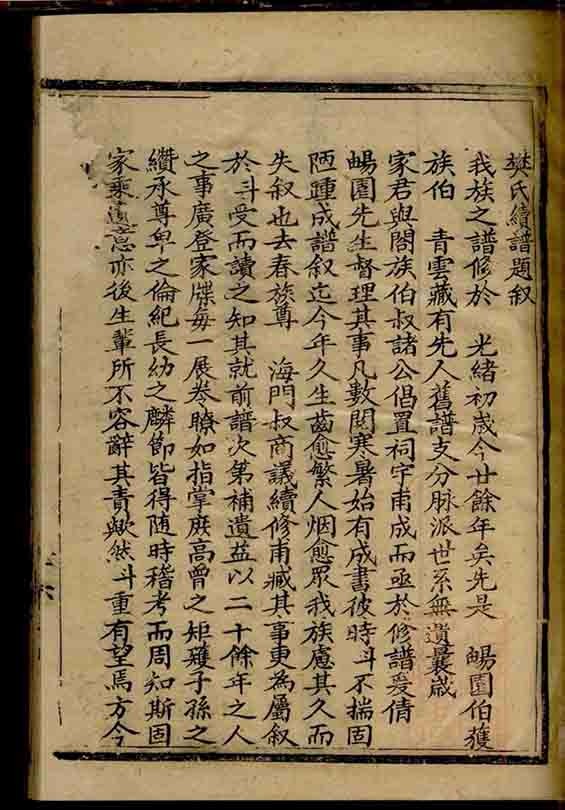 樊氏續譜題叙
我族之譜修於 光緒初歲今廿餘年矣先是 暘園伯獲
族伯 青雲藏有先人舊譜支分脉派世系無遺曩歲
家君與閤族伯叔諸公倡置祠宇甫成而亟於修譜爰倩
暘園先生督理其事凡數閱寒暑始有成書彼時斗不揣固
陋踵成譜叙迄今年久生齒愈繁人烟愈眾我族慮其久而
失叙也去春族尊 海門叔商議續修甫蕆其事更為屬叙
於斗受而讀之知其就前譜次第補遺益以二十餘年之人
之事廣登家牒每一展卷瞭如指掌庶高曾之矩矱子孫之
纘承尊卑之倫紀長幼之麟節皆得隨時稽考而周知斯固
家乘遺意亦後生輩所不容辭其責歟然斗重有望焉方今